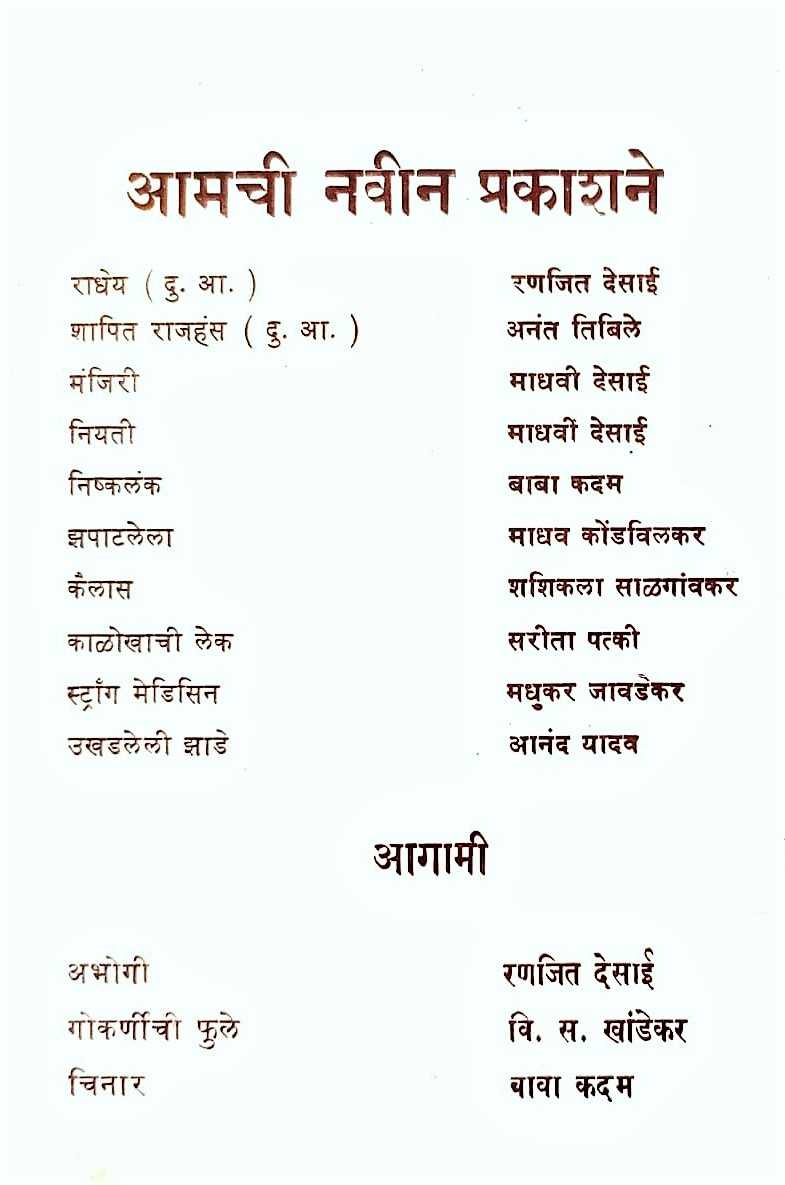 आमची नवीन प्रकाशने
राधेय ( दु. आ. ) रणजित देसाई
शापित राजहंस ( दु. आ. ) अनंत तिबिले
मंजिरी माधवी देसाई
नियती माधवीं देसाई
निष्कलंक बाबा कदम
झपाटलेला माधव कोंडविलकर
कैलास शशिकला साळगांवकर
काळोखाची लेक सरीता पत्की
स्ट्राँग मेडिसिन मधुकर जावडेकर
उखडलेली झाडे आनंद यादव
आगामी
अभोगी रणजित देसाई
गोकर्णीची फुले वि. स. खांडेकर
चिनार बाबा कदम